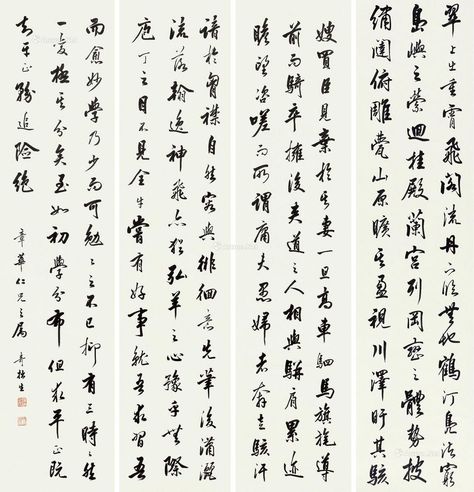 翠上出重霄飛閣流丹下臨無地鶴汀鳧渚窮
島嶼之縈迴桂殿蘭宮列岡巒之體勢披
繡闥俯雕甍山原曠其盈視川澤盱其駭
嫂買臣見棄於其妻一旦高車駟馬旗旄導
前而騎卒擁後夾道之人相與駢肩累迹
瞻望咨嗟而所謂庸夫愚婦者奔走駭汗
諳於胷襟自然容與徘徊意先筆後瀟灑
流落翰逸神飛亦猶弘羊之心豫乎無際
庖丁之目不見全牛嘗有好事就吾求習吾
而愈妙學乃少而可勉勉之不已抑有三時時然
一變極其分矣至如初學分布但求平正既
知平正務追險絕
章華仁兄之屬